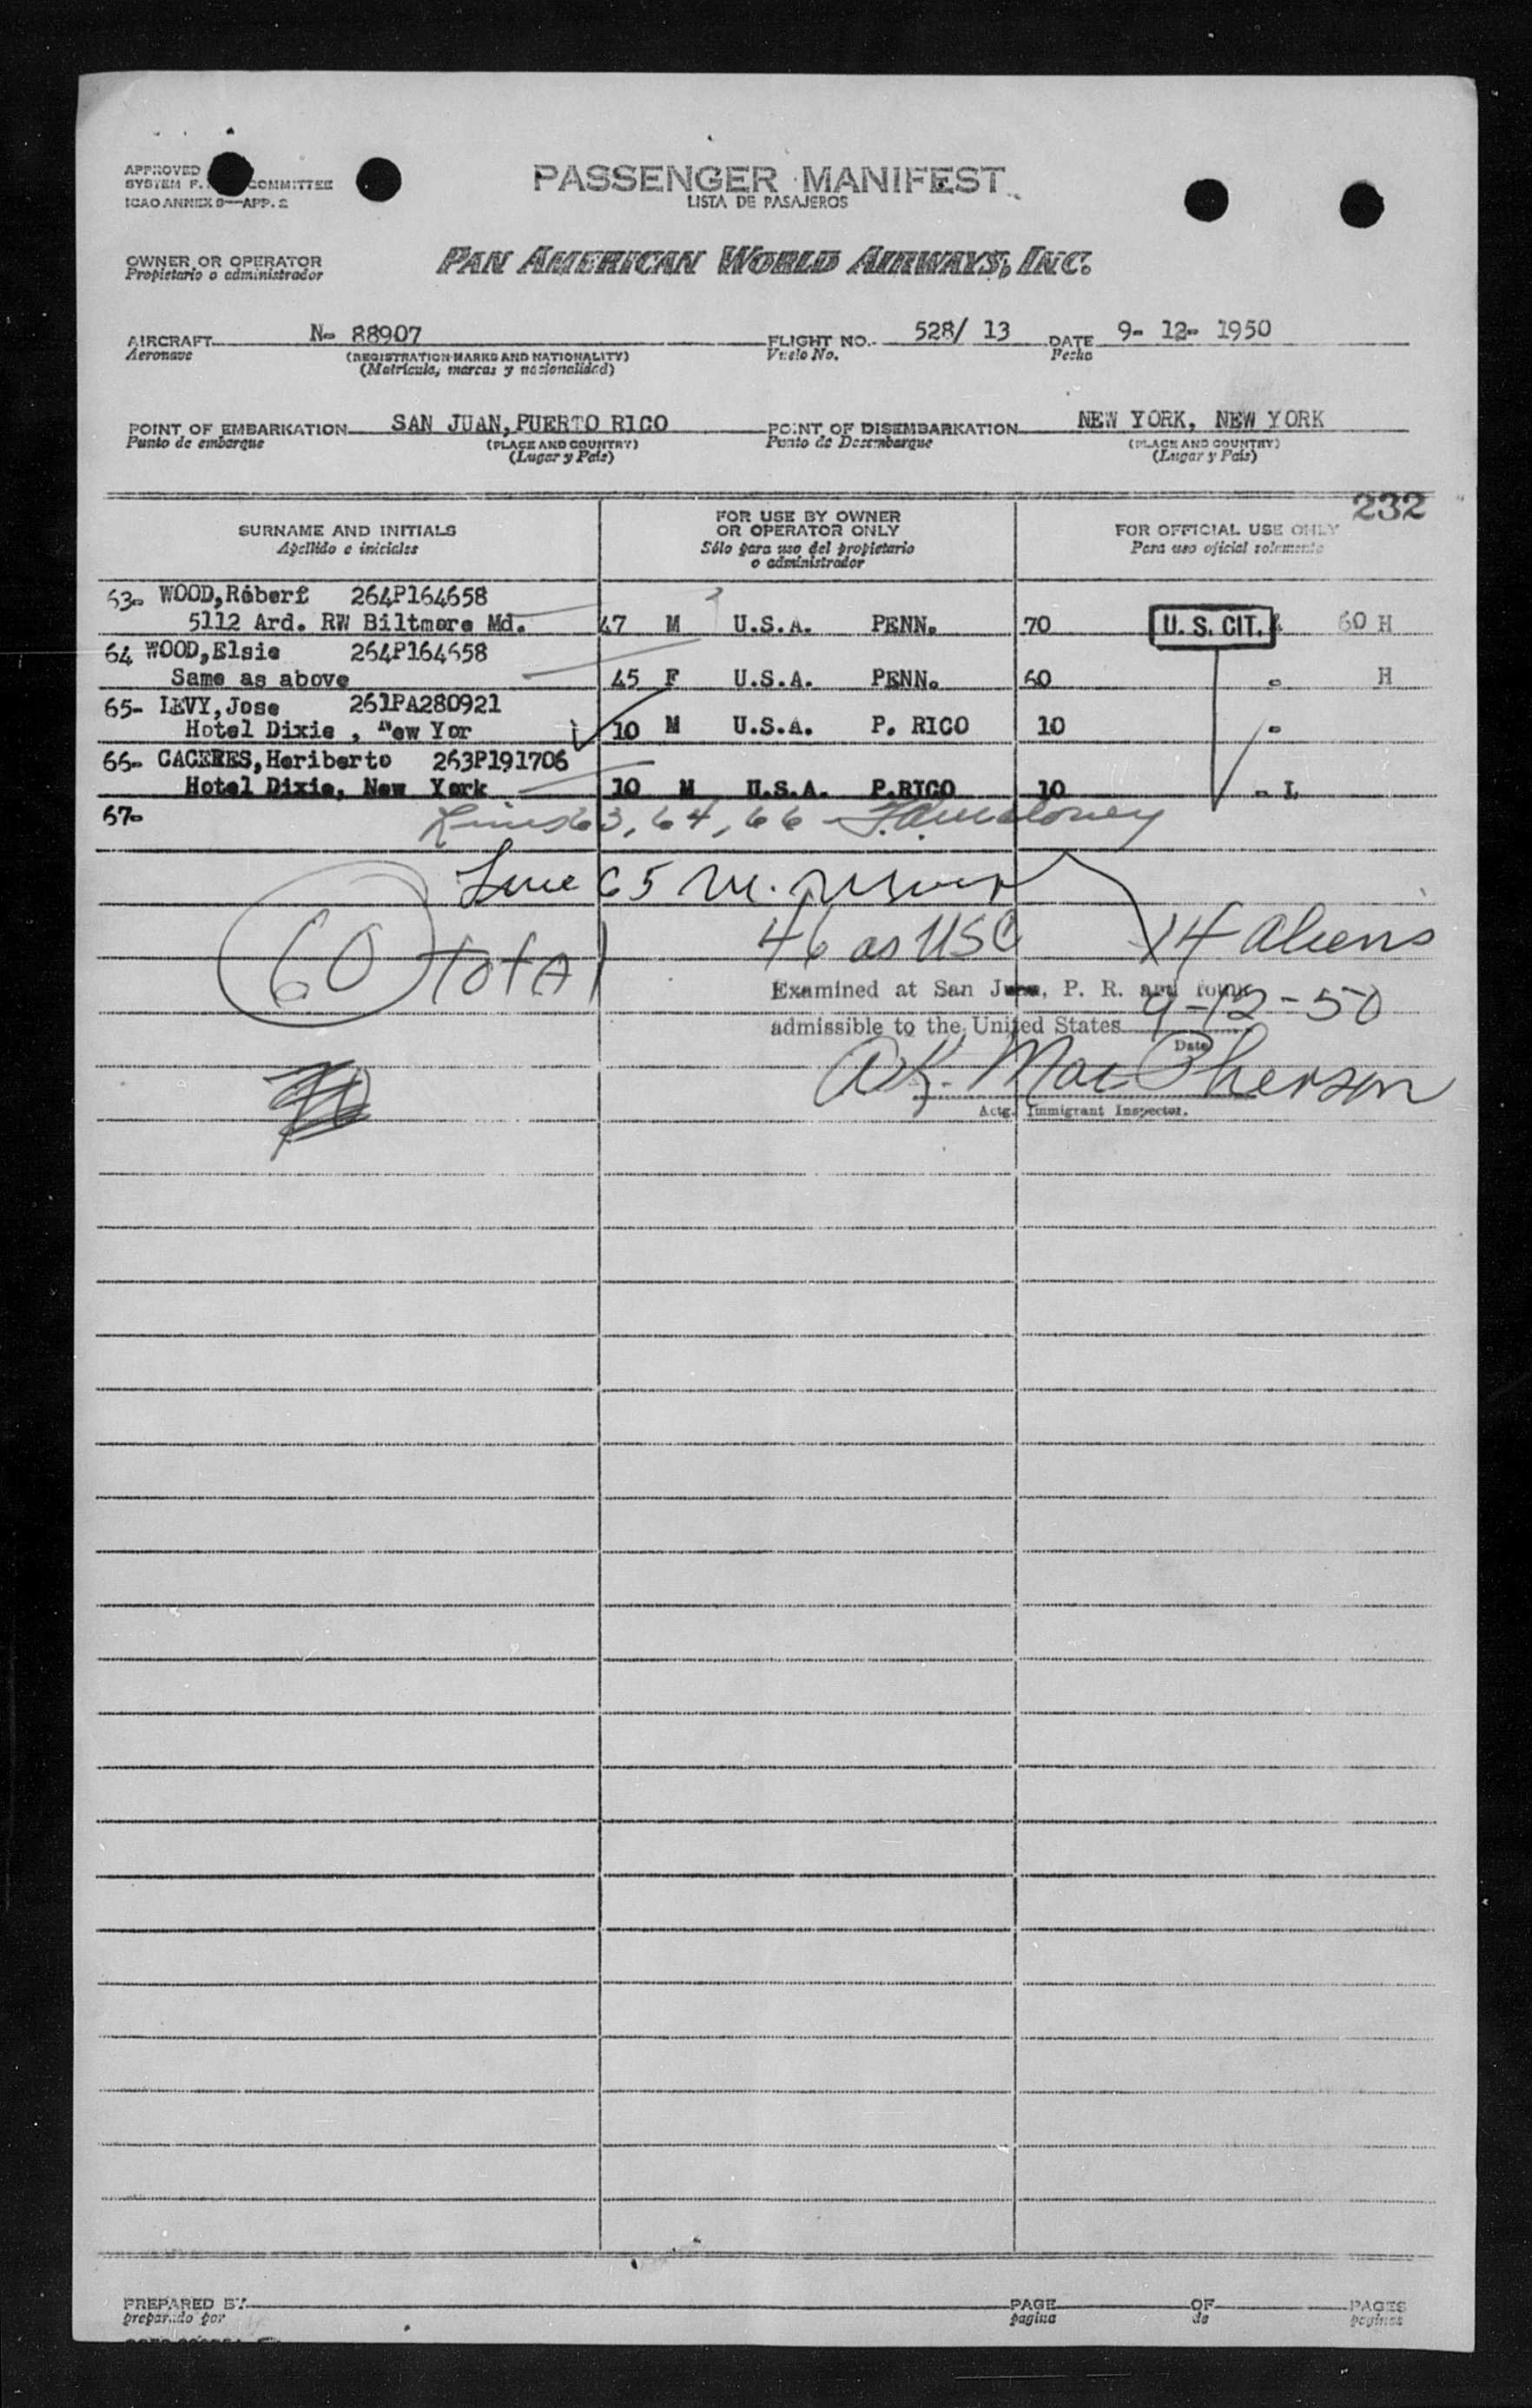 APPROVED
SYSTEM F. COMMITTEE
ICAO ANNEX 9—APP. 2
PASSENGER MANIFEST
LISTA DE PASAJEROS
OWNER OR OPERATOR
Propietario o administrador
PAN AMERICAN WORLD AIRWAYS, INC.
AIRCRAFT N- 88907 FLIGHT NO. 528/ 13 DATE 9- 12- 1950
Aeronave (REGISTRATION MARKS AND NATIONALITY) Vuelo No. Fecha
(Matrícula, marcas y nacionalidad)
POINT OF EMBARKATION SAN JUAN, PUERTO RICO POINT OF DISEMBARKATION NEW YORK, NEW YORK
Punto de embarque (PLACE AND COUNTRY) Punto de Desembarque (PLACE AND COUNTRY)
(Lugar y País) (Lugar y País)
232
SURNAME AND INITIALS FOR USE BY OWNER OR OPERATOR ONLY FOR OFFICIAL USE ONLY
Apellido e iniciales Sólo para uso del propietario o administrador Para uso oficial solamente
63- WOOD, Robert 264P164658
5112 Ard. RW Biltmore Md. 47 M U.S.A. PENN. 70 U. S. CIT. 60 H
64 WOOD, Elsie 264P164658
Same as above 45 F U.S.A. PENN. 60 " H
65- LEVY, Jose 261PA280921
Hotel Dixie , New Yor 10 M U.S.A. P. RICO 10 "
66- CACERES, Heriberto 263P191706
Hotel Dixie, New York 10 M U.S.A. P.RICO 10 " L
67-
Lines 63, 64, 66
Line 65 M.
60 total 46 as USC 14 aliens
Examined at San Juan, P. R. and found
admissible to the United States 9-12-50
Date
A.K. MacPherson
Actg. Immigrant Inspector.
PREPARED BY PAGE OF PAGES
preparado por pagina de paginas